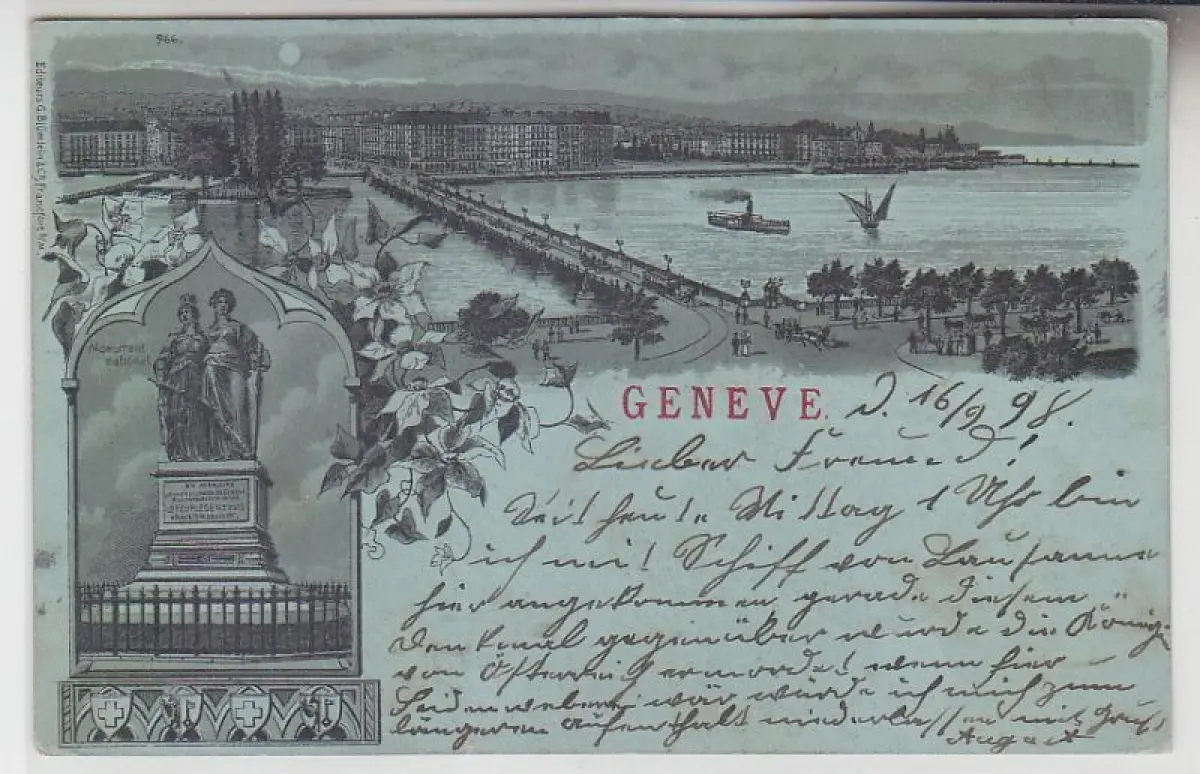 966.
Editeurs G. Blümlein & Co, Francfort s/M.
Monument
national
GENEVE.
D. 16/9 98.
Lieber Freund!
Seit heute Mittag 1 Uhr bin
ich mit Schiff von Lausanne
hier angekommen, gerade diesem
Denkmal gegenüber wurde die Königin
von Österreich ermordet wenn hier
Seidenweberei wär würde ich mich zum
längeren aufenthalt niederlassen mit Gruß
August